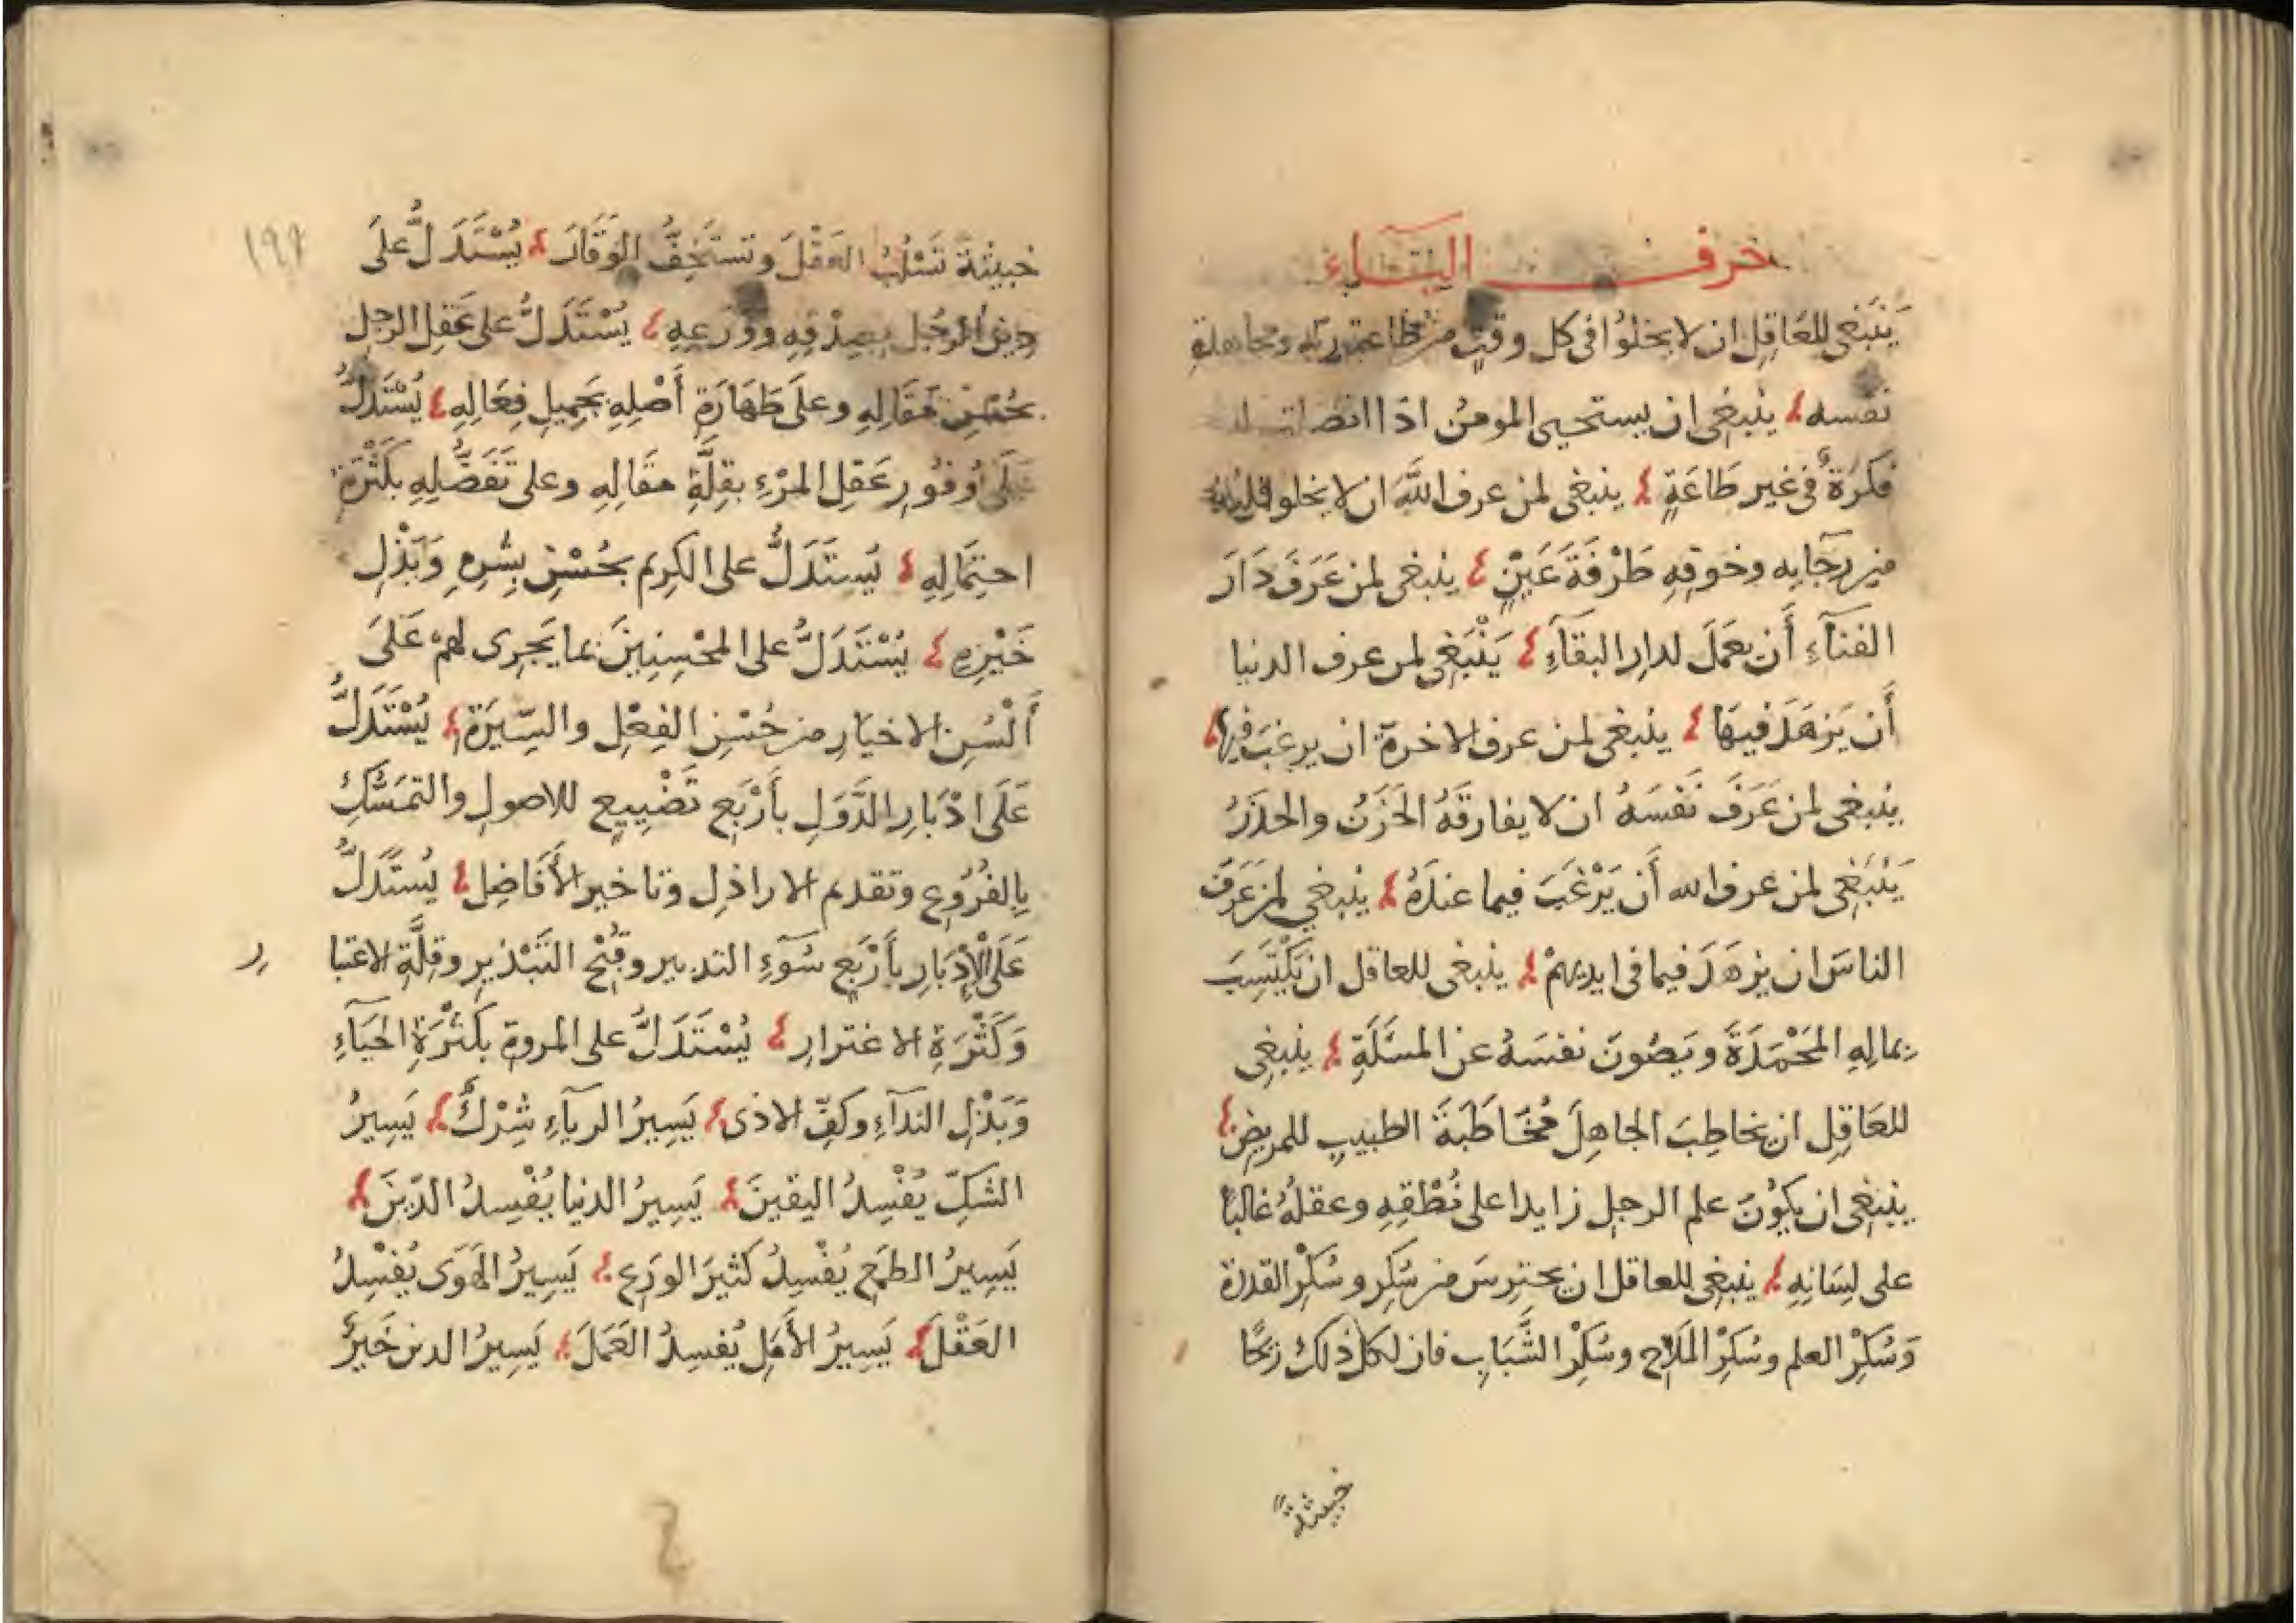 حرف اليآء
يَنْبَغي للعَاقِلِ ان لا يخلوُا في كل وقتٍ من طاعة ربّه ومجاهدة
نفسه ينبغي ان يستحيي المومنُ اذا اتصلت له
فكرَةٌ في غير طَاعَةٍ ينبغي لمن عرف اللَّهَ ان لا يخلوا قلبه
من رجَآيه وخوفِهِ طَرْفَةَ عَيْنٍ ينبغي لمن عَرَفَ دَارَ
الفنآءِ أَن يعمَلَ لدارِ البقَآءِ يَنْبَغِي لمن عرف الدنيا
أَن يَزهَدَ فيهَا ينبغي لمن عرف الاخرة ان يرغبَ فيها
ينبغي لمن عَرَفَ نَفْسَهُ ان لا يفارقَهُ الحَزَنُ والحذَرُ
يَنْبَغِي لمن عرف الله أَن يَرْغَبَ فيما عندَهُ ينبغي لمن عَرَفَ
الناسَ ان يزهَدَ فيما في ايديهمْ ينبغي للعاقل ان يَكْتَسِبَ
بمالِهِ المَحْمَدَةَ ويَصُونَ نفسَهُ عن المسَئَلَةِ ينبغي
للعَاقِلِ ان يخاطِبَ الجاهِلَ مُخَاطَبَةَ الطبيبِ للمريضِ
ينبغي ان يكوُنَ علم الرجلِ زايدا على نُطْقِهِ وعقلُهُ غالبًا
على لِسَانِهِ ينبغي للعاقل ان يحترِسَ من سُكرِ وسُكْرِ القدرة
وَسُكْرِ العلم وسُكْرِ المَدْحِ وسُكْرِ الشَّبَابِ فان لكل ذلك ريحًا
خبيثةً
١٩٩
خبيثة تَسْلُبُ العَقْلَ وتستَخِفُّ الوَقَارَ يُسْتَدَلُّ على
دين الرجُلِ بصِدْقِهِ ووَرَعِهِ يُسْتَدَلُّ على عَقلِ الرجلِ
بحُسْنِ مَقَالِهِ وعلَى طَهَارَةِ أَصْلِهِ بجَمِيلِ فِعَالِهِ يُسْتَدَلُّ
عَلَى وُفُورِ عَقلِ المرْءِ بقِلَّةِ مقَالِهِ وعلى تَفَضُّلِهِ بكَثْرَةِ
احتِمَالِهِ يُستَدَلُّ على الكرِيم بحُسْنِ بِشْرِهِ وَبَذْلِ
خَيْرِهِ يُسْتَدَلُّ على المحْسِنِينَ بما يَجرِى لهُمْ عَلَى
أَلْسُنِ الاخيَارِ من حُسْنِ الفِعْلِ والسِّيَرَةِ يُسْتَدَلُّ
عَلَى ادْبَارِ الدَّوَلِ بأَرْبَعٍ تَضْيِيعٍ للاصولِ والتمَسُّكِ
بِالفُرُوعِ وتقدم الاراذِلِ وتاخير الأَفَاضِلِ يُستَدَلُّ
عَلَى الْإِدْبَارِ بأَرْبَعٍ سُوَءِ التدبير وقُبْح التَبْذيرِ وقِلَّةِ الاعتبا
ر
وَكَثْرَةِ الاغترارِ يُسْتَدَلُّ على المروةِ بكَثْرَةِ الحَيَآءِ
وَبَذْلِ الندآءِ وكفِّ الاذى يَسِيرُ الريآءِ شِرْكٌ يَسِيرُ
الشكِّ يُفْسِدُ اليقينَ يَسِيرُ الدنيا يُفْسِدُ الدّينَ
يَسِيرُ الطمَعِ يُفْسِدُ كثيرَ الورَعِ يَسِيرُ الهَوَى يُفسْدُ
العَقْلَ يَسِيرُ الأَمَلِ يُفسِدُ العَمَلَ يَسِيرُ الدين خَيرٌ